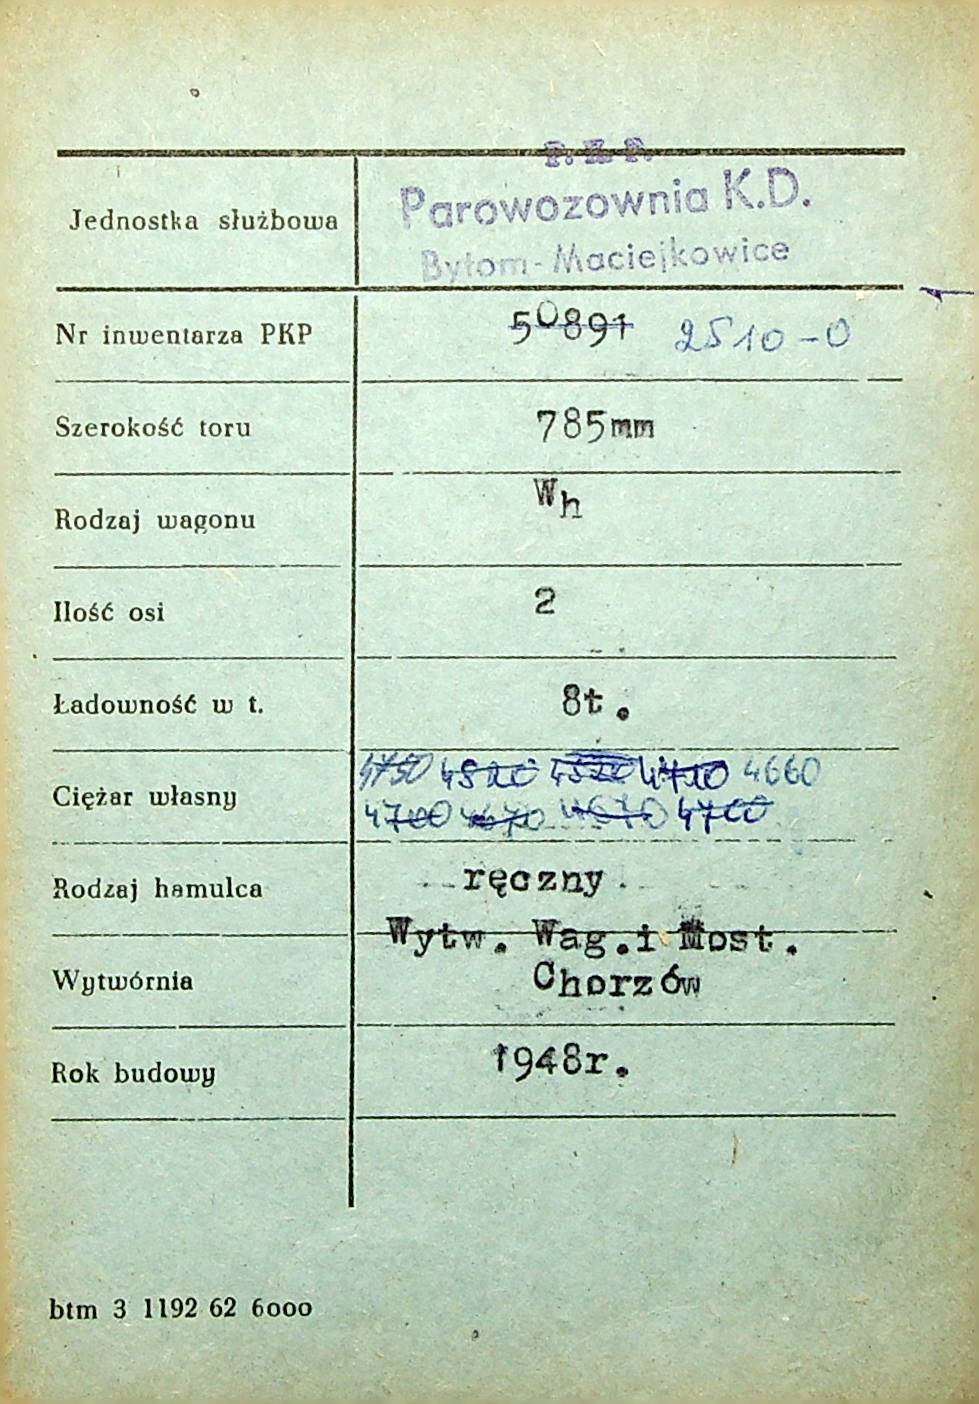 P. K. P.
Parowozownia K.D.
Bytom-Maciejkowice
Jednostka służbowa
Nr inwentarza PKP 50891 2510-0
Szerokość toru 785mm
Rodzaj wagonu Wh
Ilość osi 2
Ładowność w t. 8t.
4750 4820 4520 4710 4660
Ciężar własny
4700 4670 4670 4700
Rodzaj hamulca ręczny
Wytw. Wag. i Most.
Wytwórnia Chorzów
Rok budowy 1948r.
btm 3 1192 62 6000